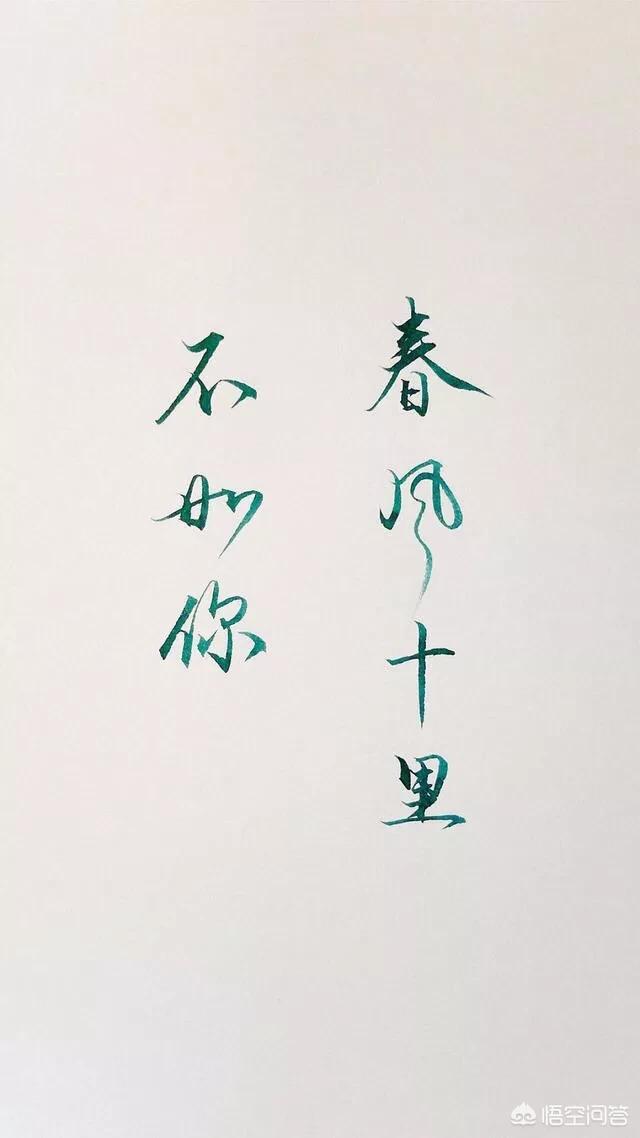 春风十里
不如你
悟空问答